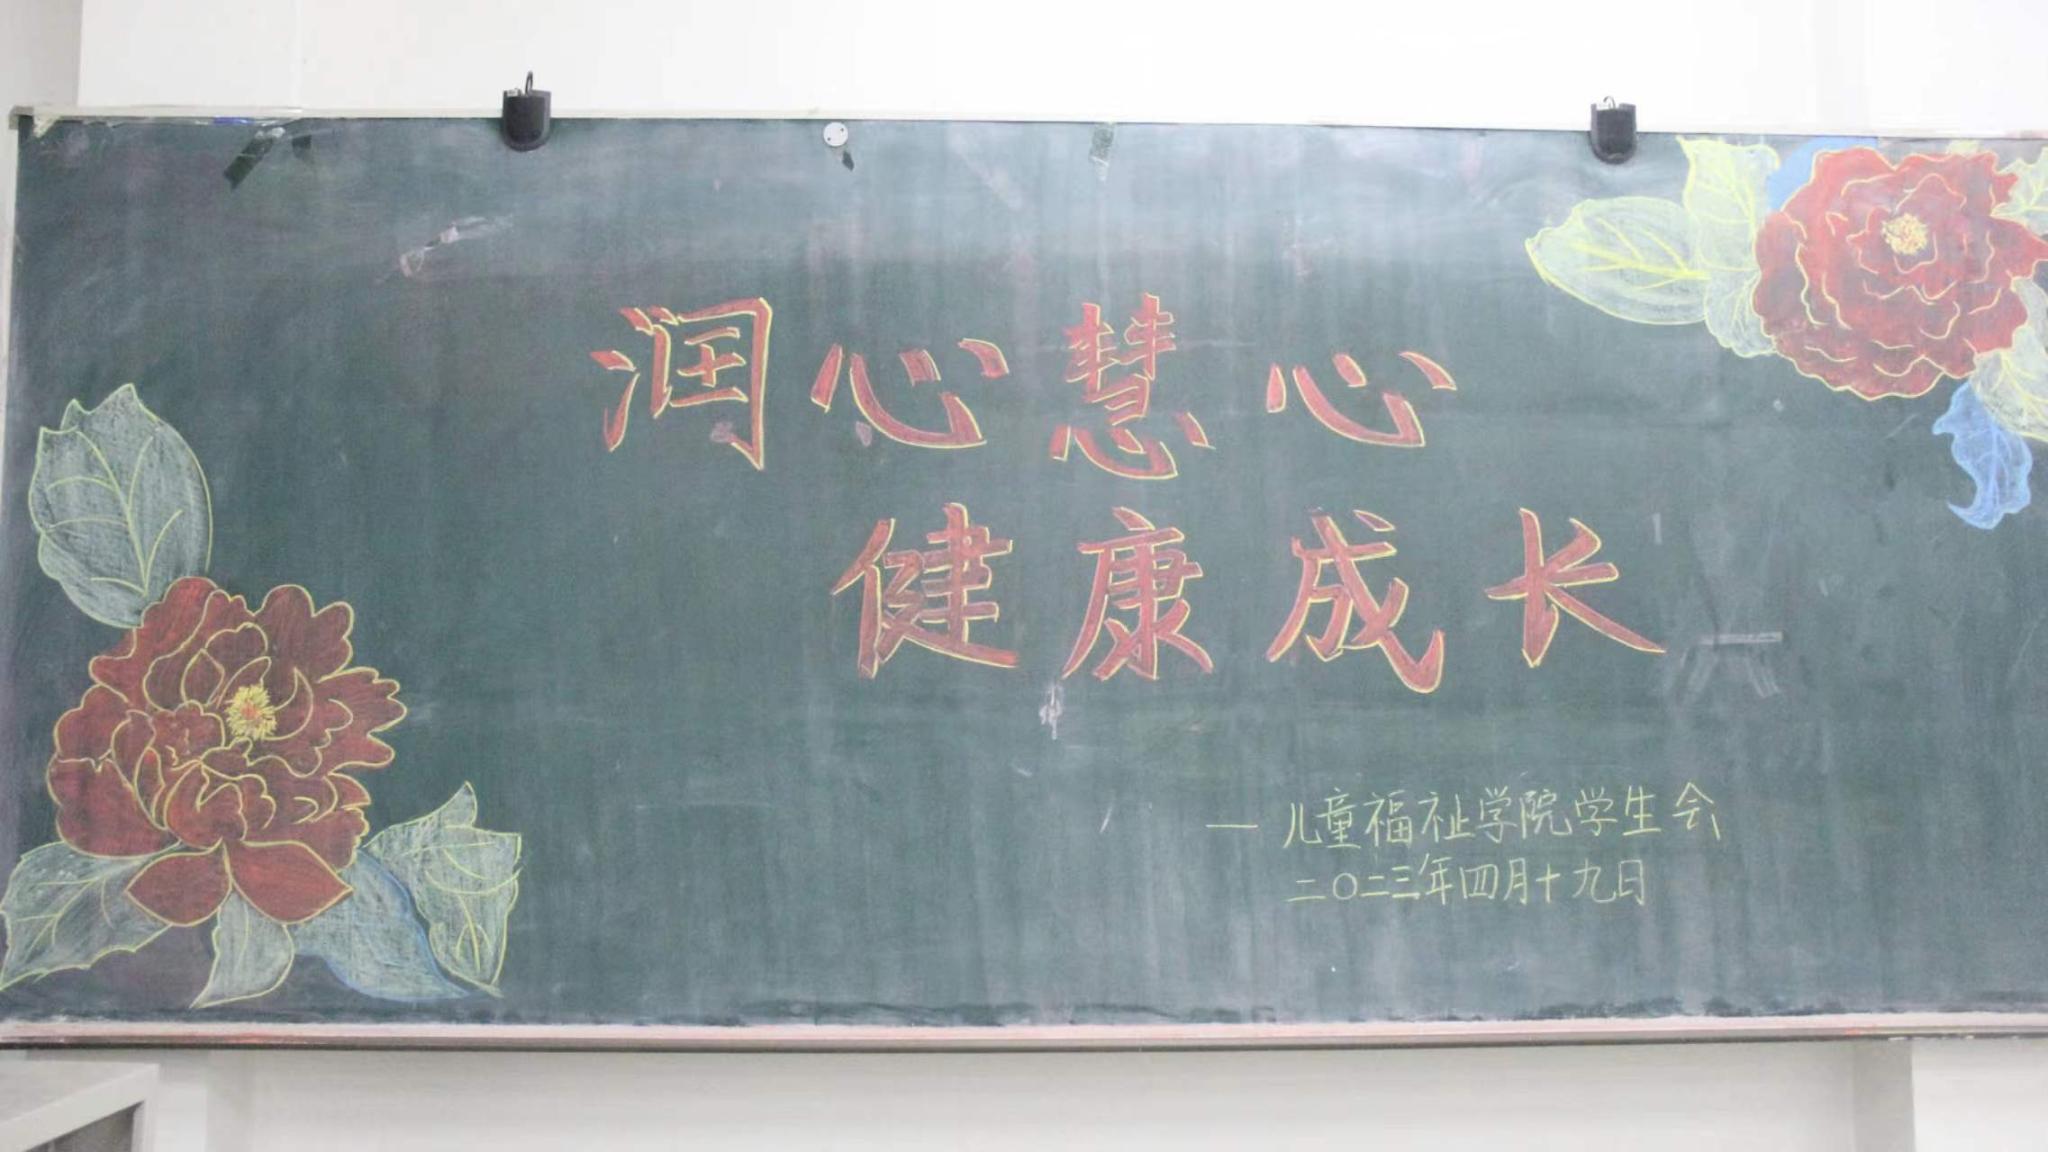 润心慧心
健康成长
—儿童福祉学院学生会
二〇二三年四月十九日